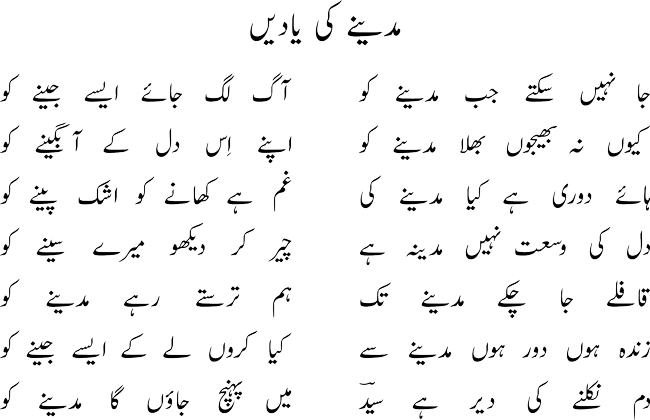 مدینے کی یادیں
جا نہیں سکتے جب مدینے کو آگ لگ جائے ایسے جینے کو
کیوں نہ بھیجوں بھلا مدینے کو اپنے اِس دل کے آبگینے کو
ہائے دوری ہے کیا مدینے کی غم ہے کھانے کو اشک پینے کو
دل کی وسعت نہیں مدینہ ہے چیر کر دیکھو میرے سینے کو
قافلے جا چکے مدینے تک ہم ترستے رہے مدینے کو
زندہ ہوں دور ہوں مدینے سے کیا کروں لے کے ایسے جینے کو
دم نکلنے کی دیر ہے سیّدؔ میں پہنچ جاؤں گا مدینے کو